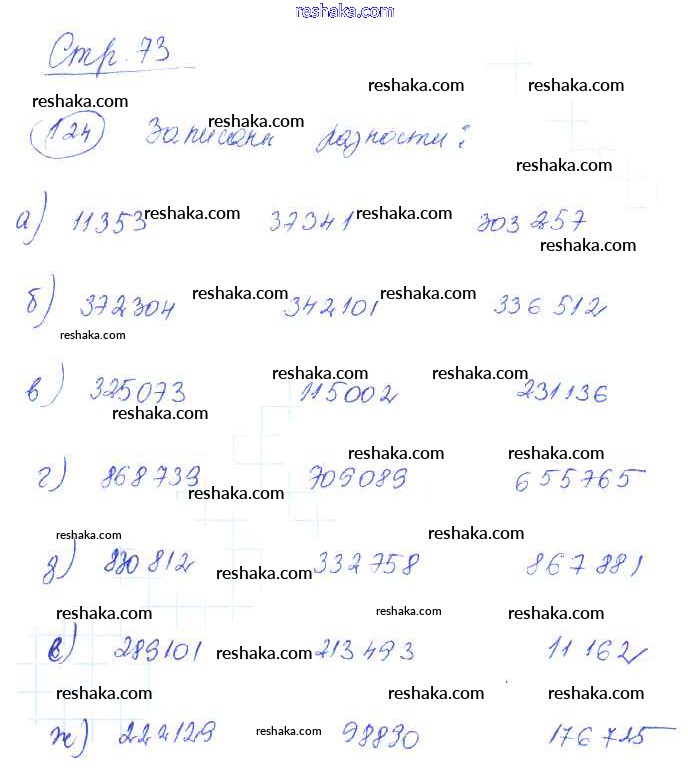 reshaka.com
Стр. 73
reshaka.com reshaka.com
reshaka.com
124 Записаны разности: reshaka.com
reshaka.com
а) 11353 reshaka.com 37341 reshaka.com 303 257
reshaka.com
б) 372304 reshaka.com 342101 reshaka.com 336 512
reshaka.com
reshaka.com reshaka.com
в) 325073 115002 231136
reshaka.com
reshaka.com reshaka.com
г) 868739 reshaka.com 709089 655765
reshaka.com reshaka.com
д) 830812 reshaka.com 332758 867 881
reshaka.com reshaka.com reshaka.com
е) 289101 reshaka.com 213 493 11 162
reshaka.com reshaka.com reshaka.com
ж) 222129 reshaka.com 98830 176 725